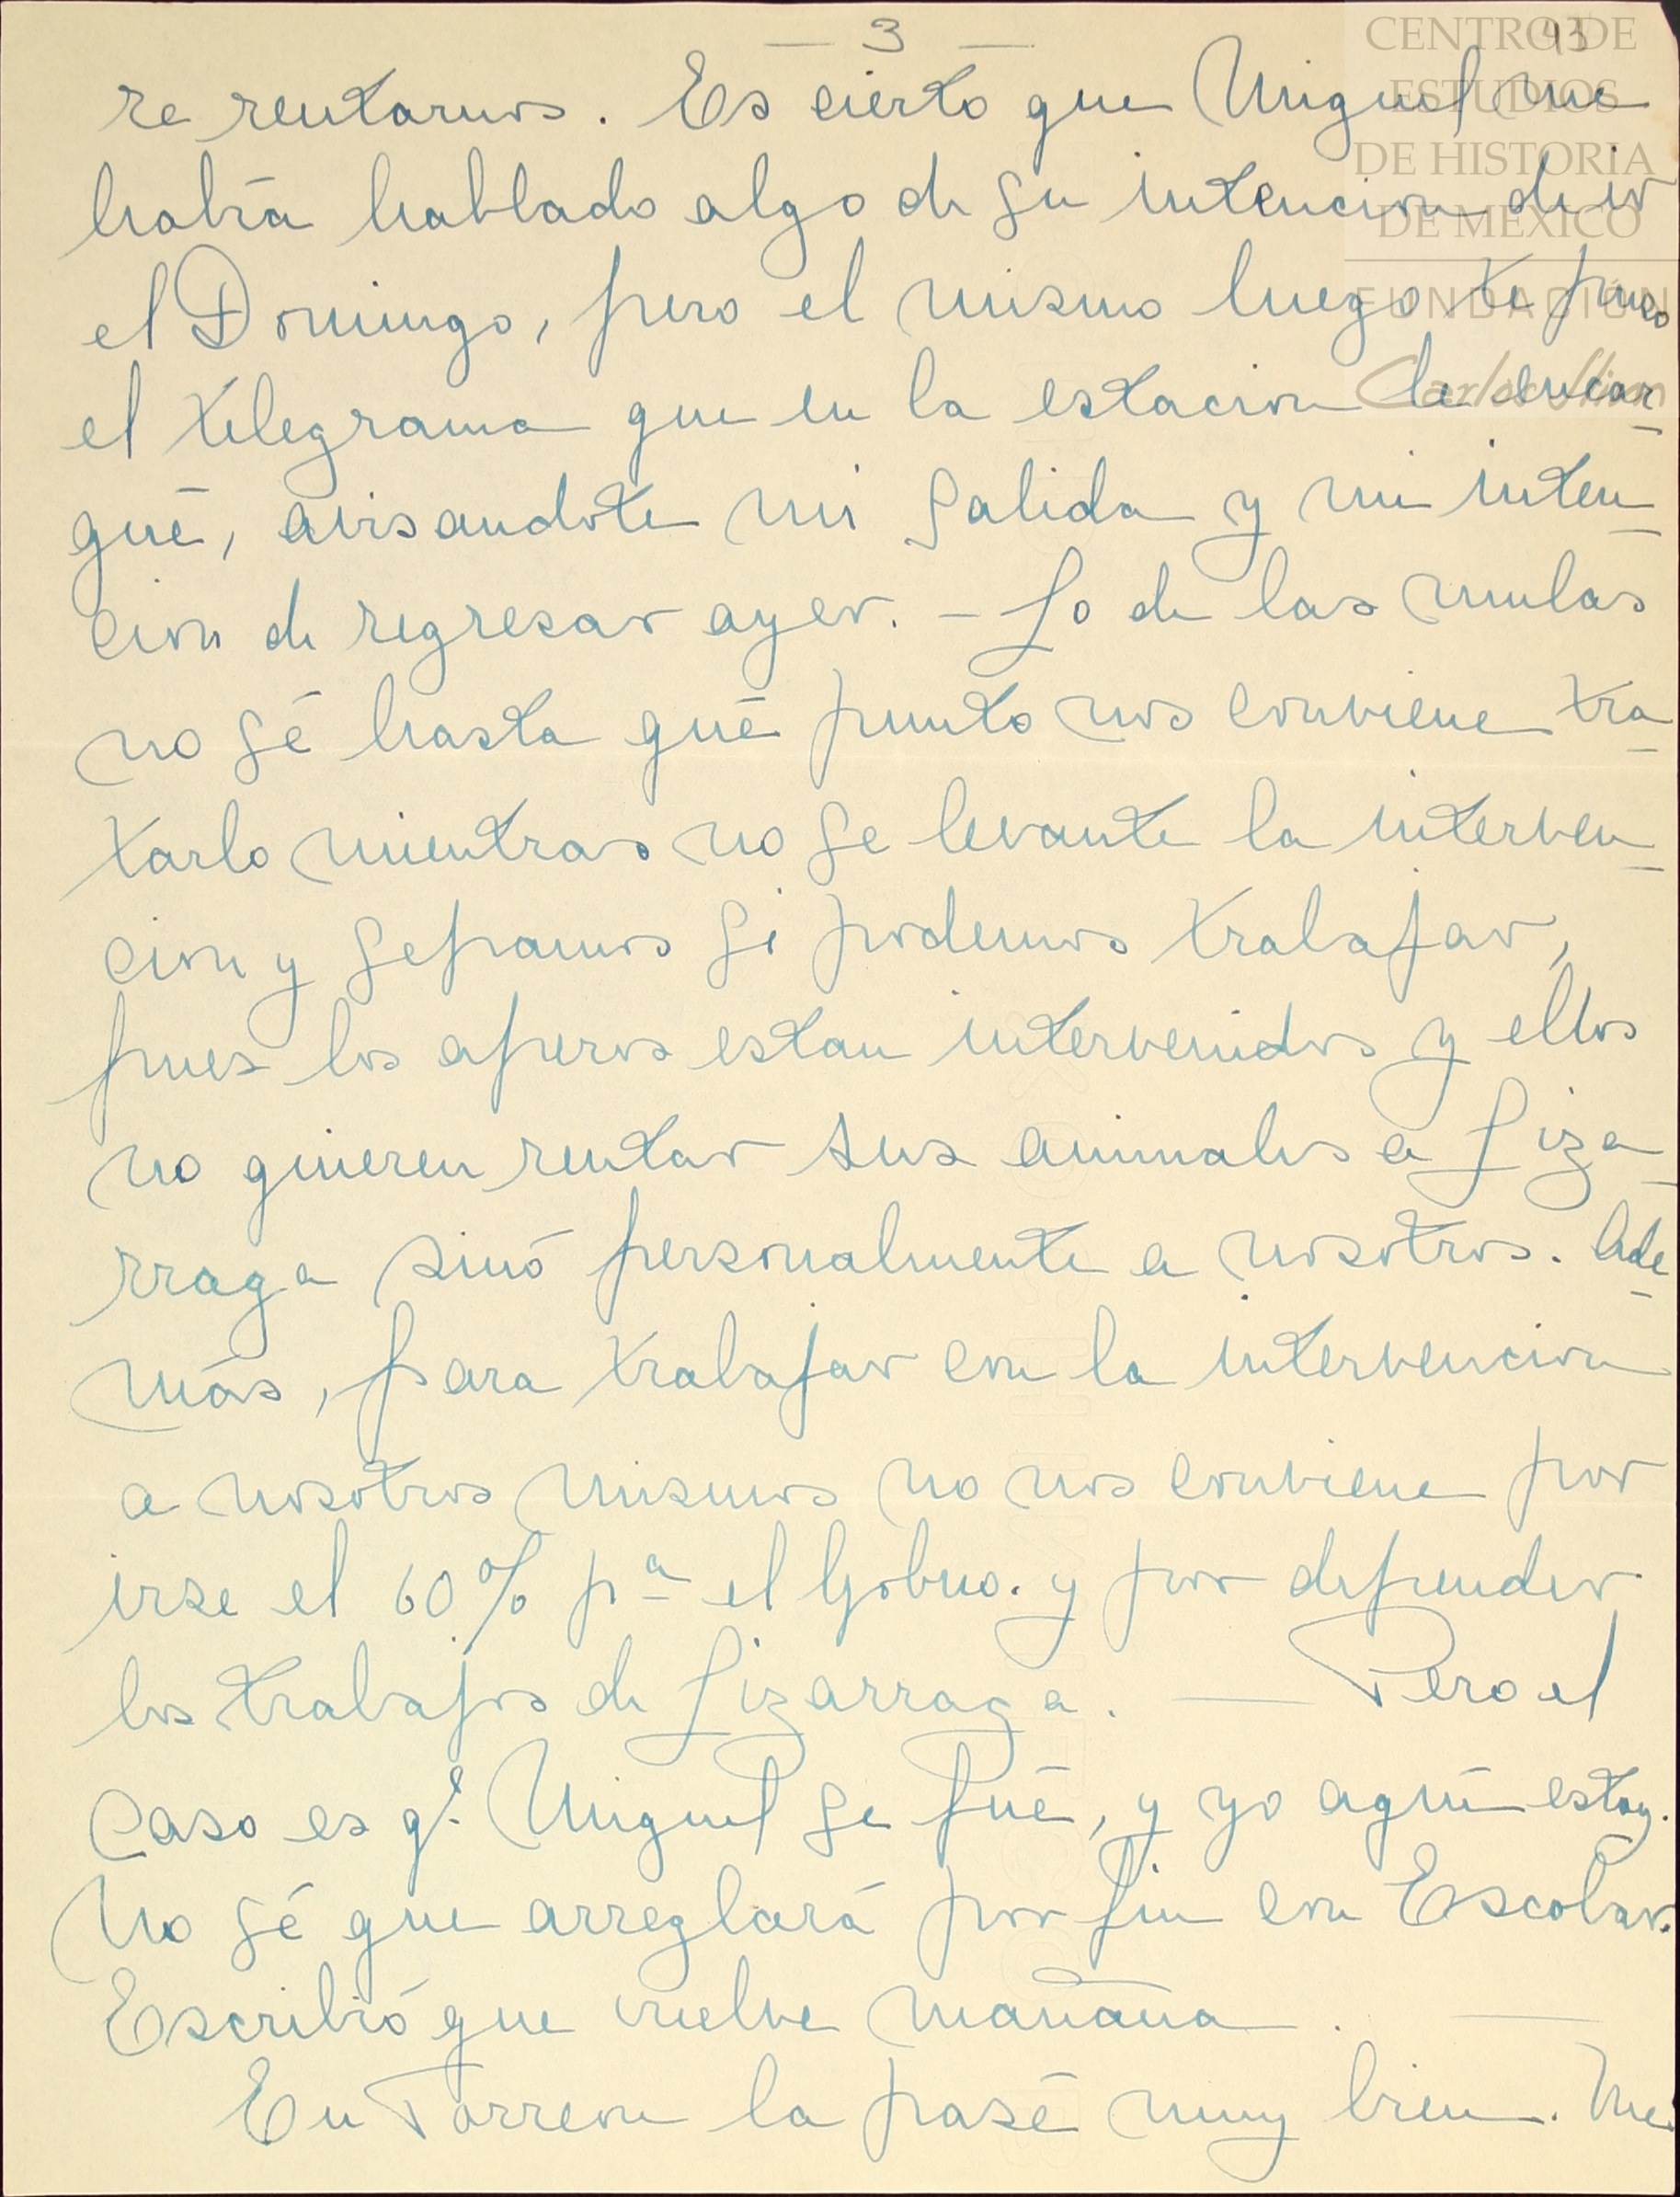 — 3 —
43
CENTRO DE
ESTUDIOS
DE HISTORIA
DE MÉXICO
FUNDACIÓN
Carlos Slim
re rentarnos. Es cierto que Miguel me
había hablado algo de su intencion de ir
el Domingo, pero el mismo luego te puso
el telegrama que en la estacion le encar-
gué, avisandote mi salida y mi inten-
cion de regresar ayer. – Lo de las mulas
no sé hasta qué punto nos conviene tra-
tarlo mientras no se levante la interven-
cion y sepamos si podemos trabajar,
pues los aperos estan intervenidos y ellos
no quieren rentar sus animales a Liza-
rraga sinó personalmente a nosotros. Ade-
más, para trabajar con la intervencion
a nosotros mismos no nos conviene por
irse el 60% pª el Gobno. y por depender
los trabajos de Lizarraga. — Pero el
caso es qᵉ Miguel se fué, y yo aquí estoy.
No sé que arreglará por fin con Escobar.
Escribió que vuelve mañana. —
En Torreon la pasé muy bien. Me